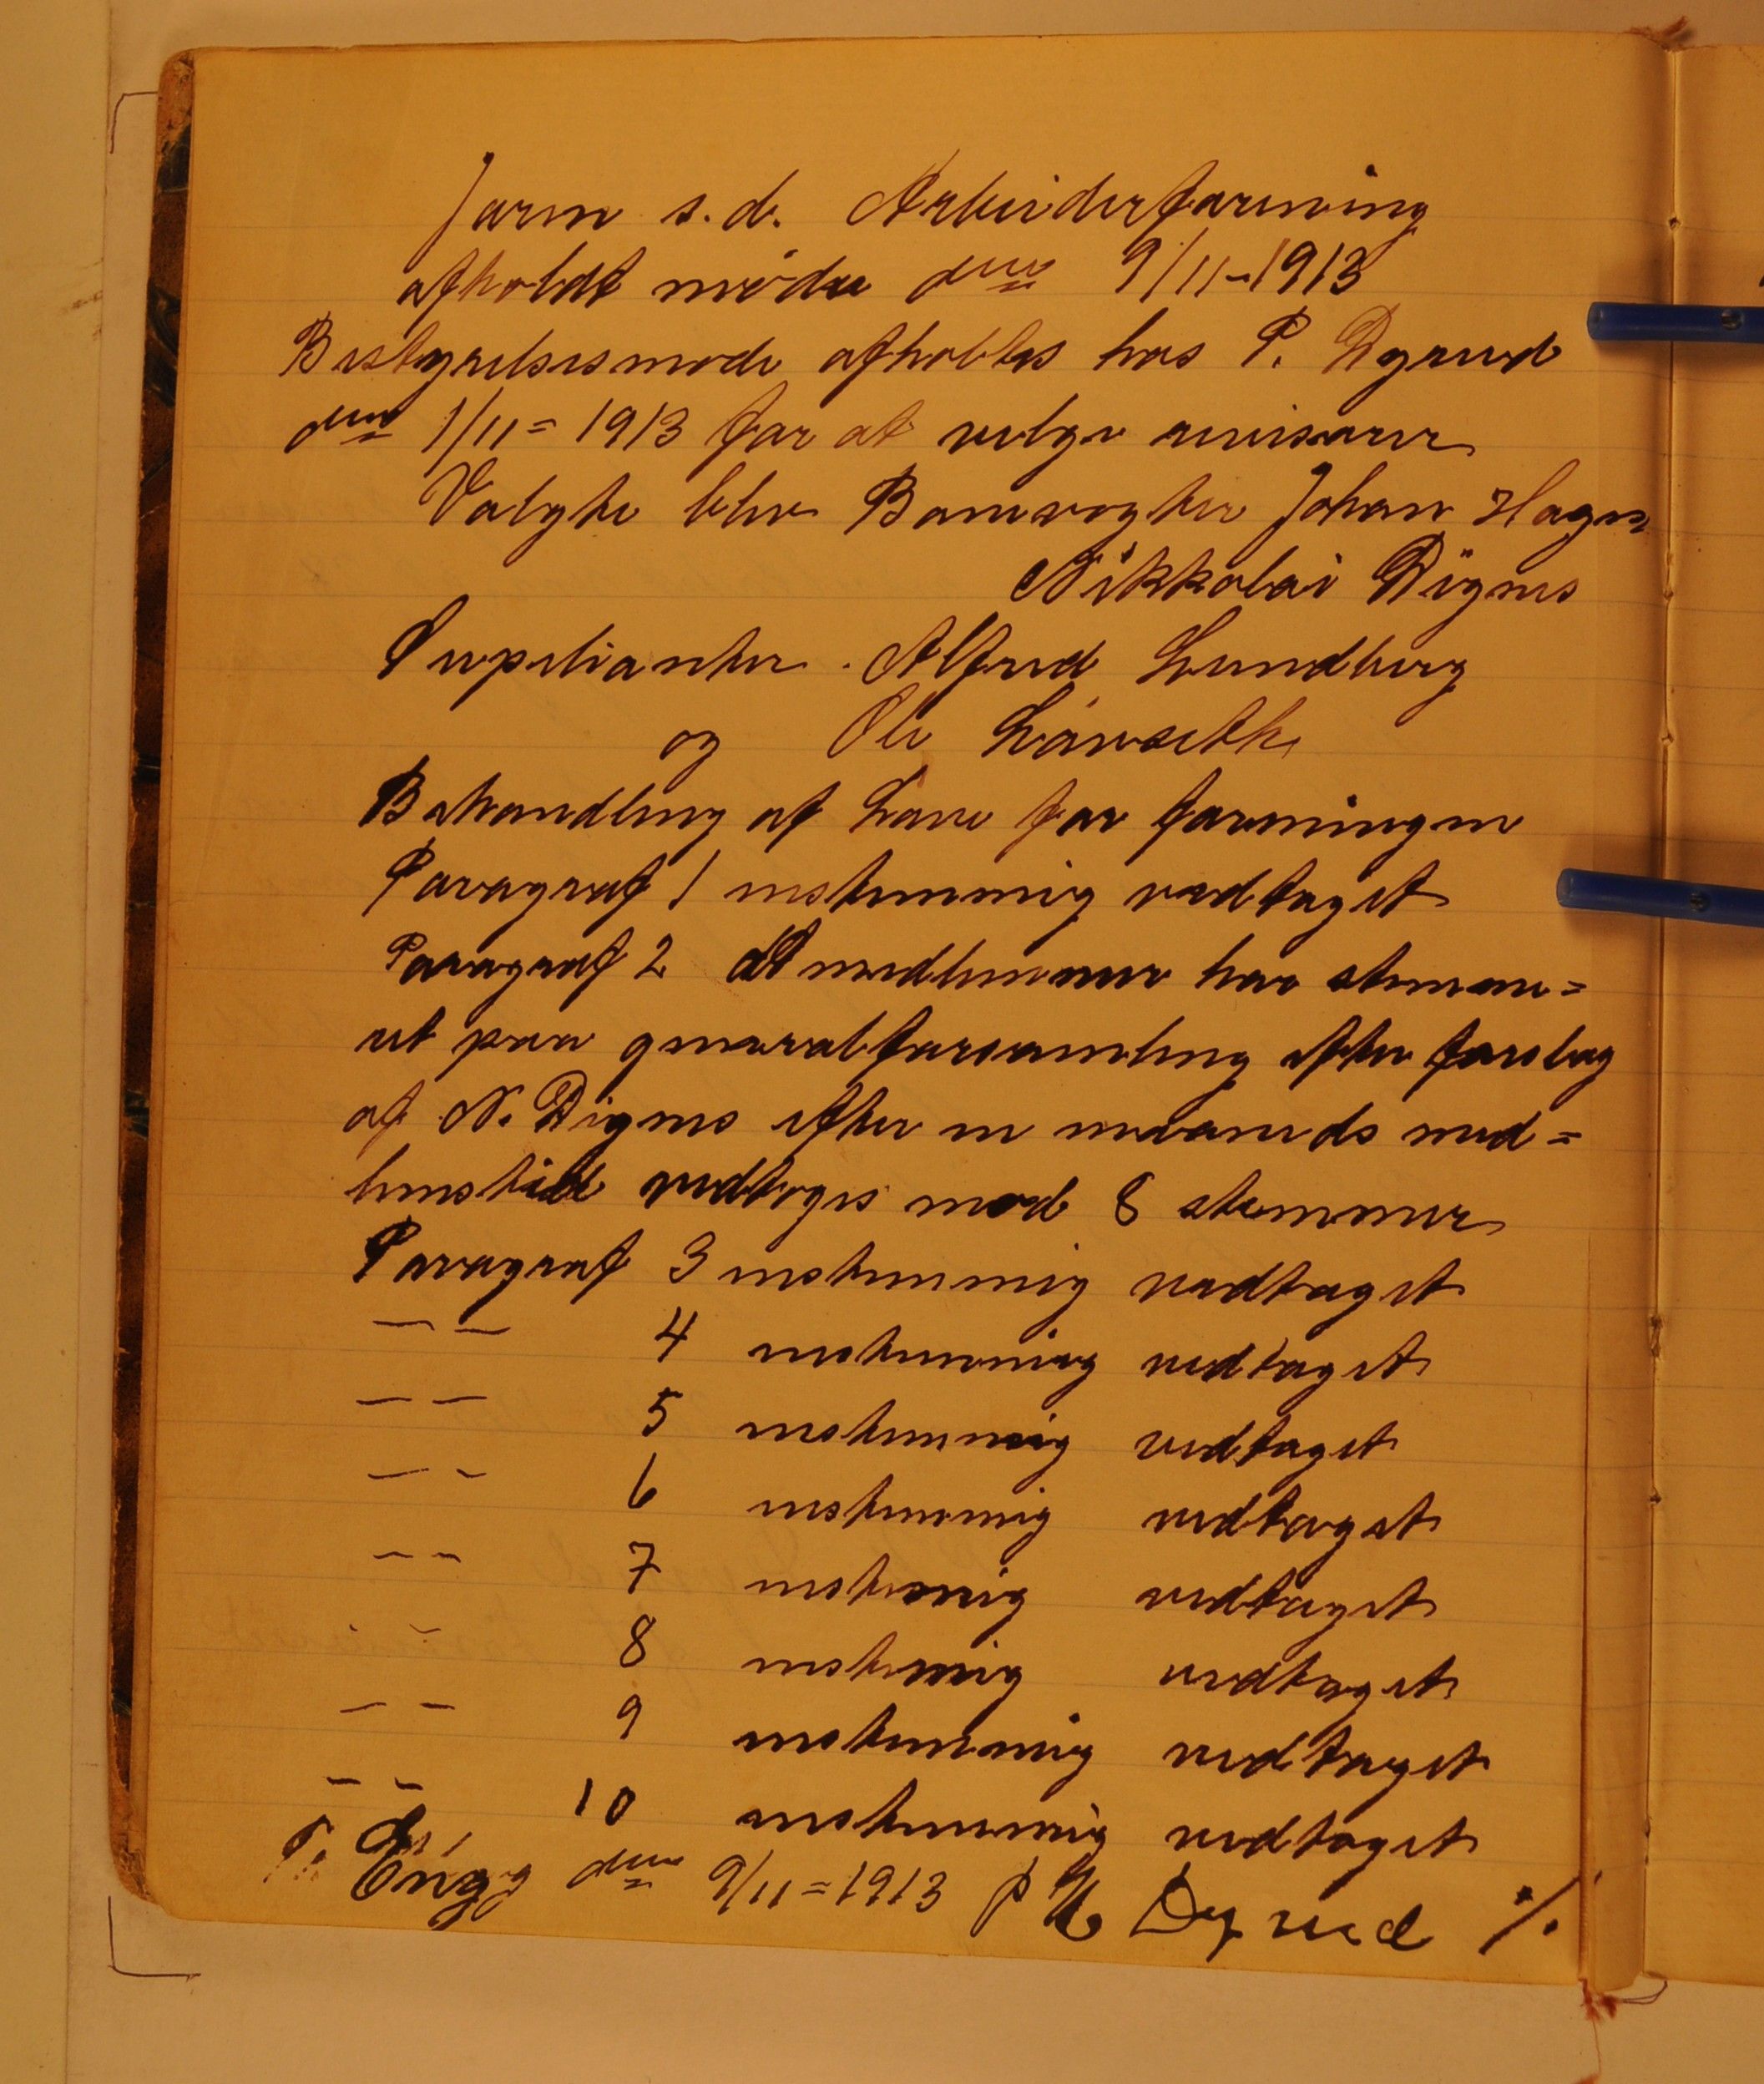 Jaren s.d. Arbeiderforening
afholdt møde den 9/11-1913
Bestyrelsesmøde afholtes hos P. Dyrud
den 1/11=1913 for at velge revisorer
Valgte blev Banevogter Johan Hagen
Nikkolai Digrus
Supelianter. Alfred Lundberg
og Ole
Behandling af Love for foreningen
Paragraf 1 enstemmig vedtaget
Paragraf 2 At medlemmer har stemme=
ret paa generalforsamling efter forslag
af N. Digrus efter en maaneds med=
lemstid vedtoges mod 8 stemmer
Paragraf 3 enstemmig vedtaget
— — 4 enstemmig vedtaget
— — 5 enstemmig vedtaget
— - 6 enstemmig vedtaget
- - 7 enstemig vedtaget
- - 8 enstemig vedtaget
- - 9 enstemmig vedtaget
- - 10 enstemmig vedtaget
den 9/11=1913 P Dyrud ⁒